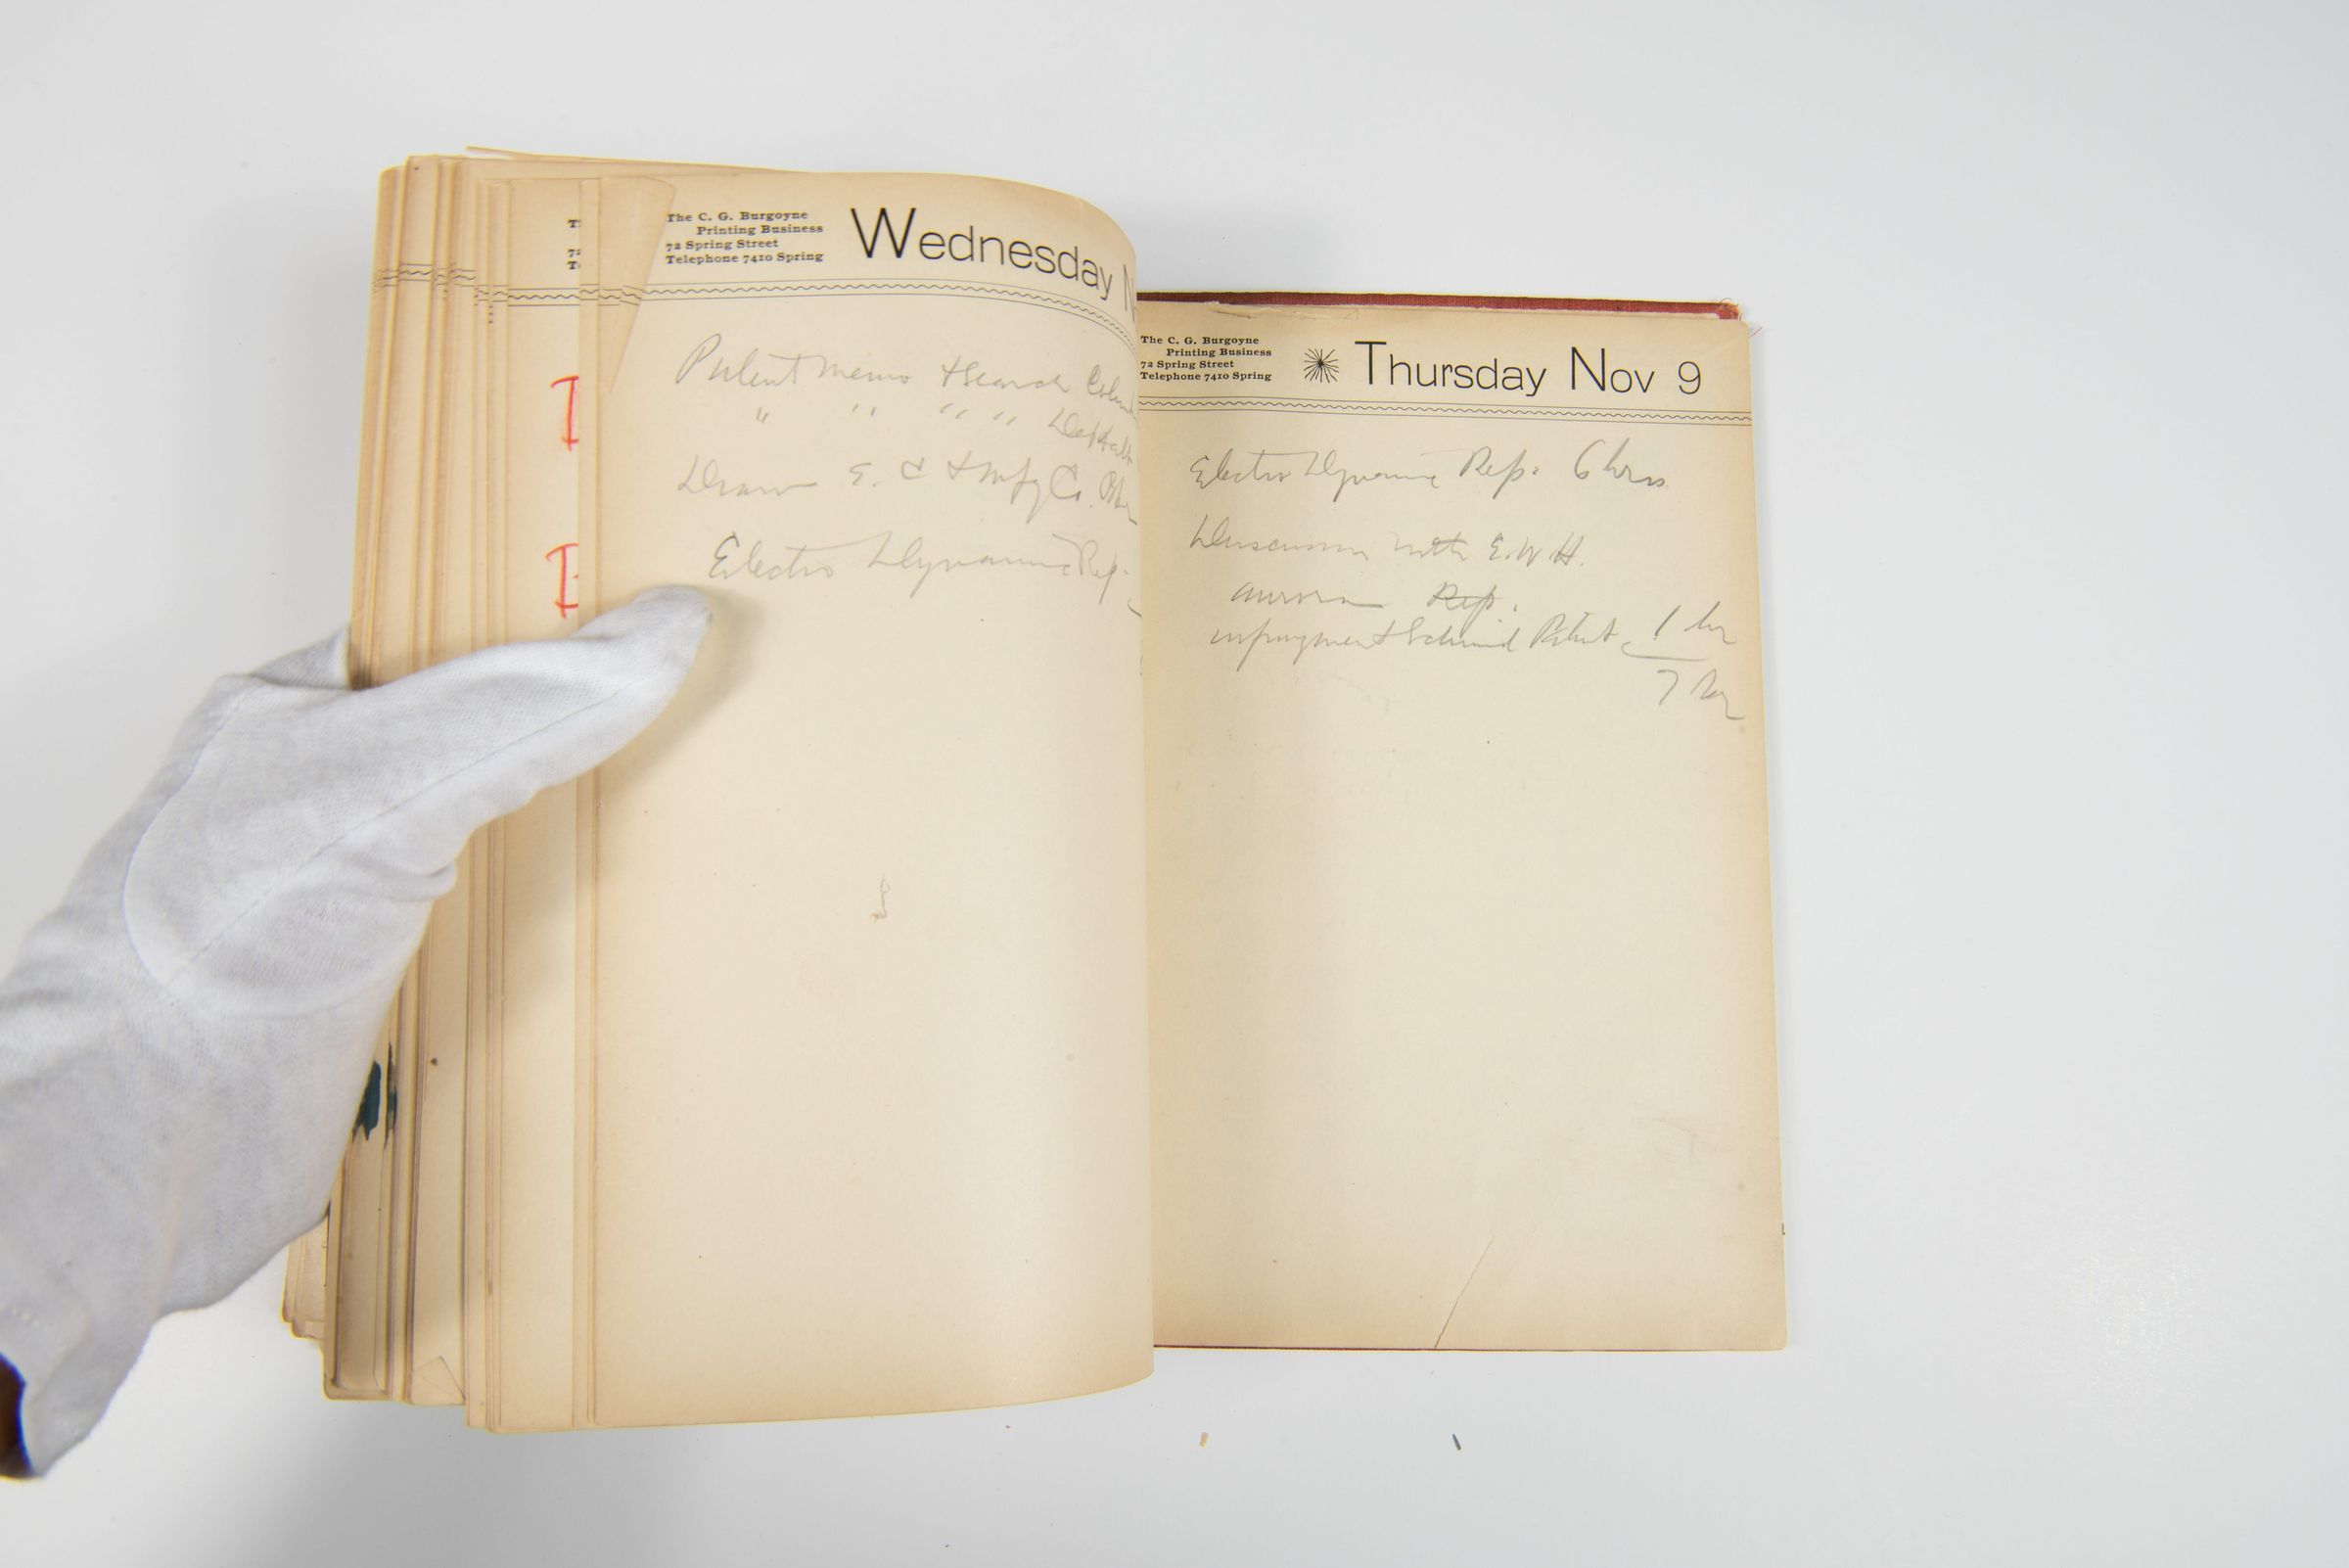 The C. G. Burgoyne
Printing Business
72 Spring Street
Telephone 7410 Spring
Wednesday N
Patent memo & Search
" " " "
E. C & Mfg Co.
Electro Dynamic Rep.
The C. G. Burgoyne
Printing Business
72 Spring Street
Telephone 7410 Spring
Thursday Nov 9
Electro Dynamic Rep. 6 hrs
Discussion with E. W. H.
aurora Rep.
infringement Schmid Patent 1 hr
7 hr